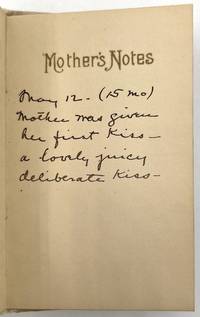 Mother's Notes
May 12 - (15 mo)
Mother was given
her first Kiss -
a lovely juicy
deliberate Kiss -